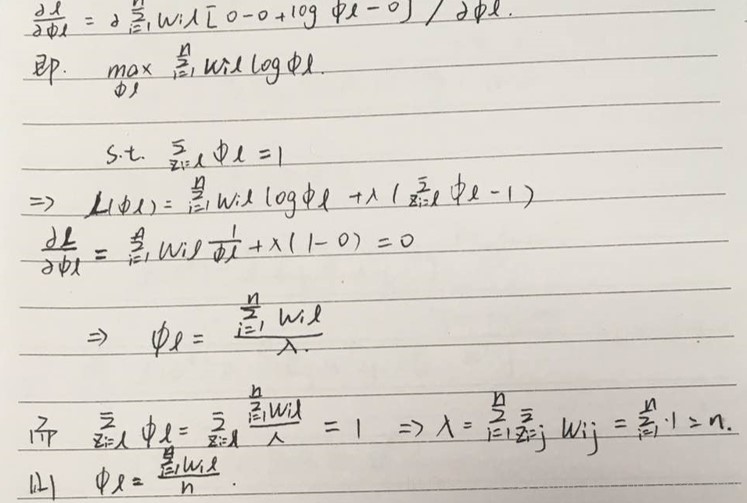 ∂l/∂φl = ∂ Σ_{i=1}^{n} wil [0-0+log φl-0] / ∂φl.
即. max_{φl} Σ_{i=1}^{n} wil log φl.
s.t. Σ_{zi=l} φl = 1
⇒ L(φl) = Σ_{i=1}^{n} wil log φl + λ(Σ_{zi=l} φl - 1)
∂l/∂φl = Σ_{i=1}^{n} wil 1/φl + λ(1-0) = 0
⇒ φl = Σ_{i=1}^{n} wil / λ.
而 Σ_{zi=l} φl = Σ_{zi=l} Σ_{i=1}^{n} wil / λ = 1 ⇒ λ = Σ_{i=1}^{n} Σ_{zi=j} wij = Σ_{i=1}^{n} 1 = n.
则 φl = Σ_{i=1}^{n} wil / n.